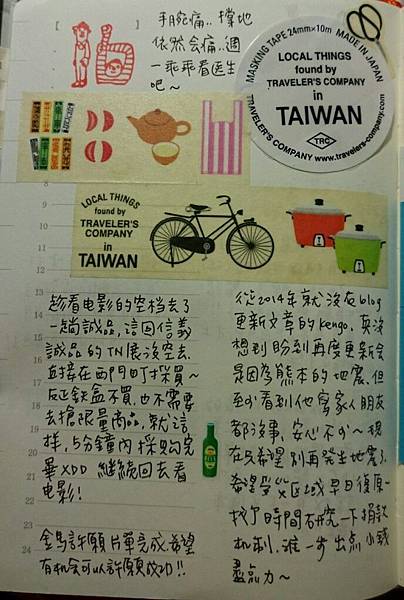 手腕痛..撐地
依然會痛..週
一乖乖看医生
吧~
MASKING TAPE 24mm×10m MADE IN JAPAN
LOCAL THINGS
found by
TRAVELER'S COMPANY
in
TAIWAN
TRC
TRAVELER'S COMPANY www.travelers-company.com
LOCAL THINGS
found by
TRAVELER'S
COMPANY
in
TAIWAN
8
9
10
11
12
13
14
15
16
17
18
19
20
21
22
23
24
趁看电影的空档去了
一趟誠品,這回信義
誠品的TN展沒空去,
直接在西門町採買~
反正鉄盒不買,也不需要
去搶限量商品,就這
樣,5分鐘內採购完
畢XDD 継続回去看
电影!
金馬許願片單完成,希望
有机会可以許願成功!!
從2014年就沒在blog
更新文章的Kengo,真沒
想到盼到再度更新会
是因為熊本的地震,但
至少看到他寫家人朋友
都沒事,安心不少~現
在只希望別再発生地震了,
希望受災区域早日復原~
找了時間研究一下捐款
机制,進一步出点小錢
盡点力~